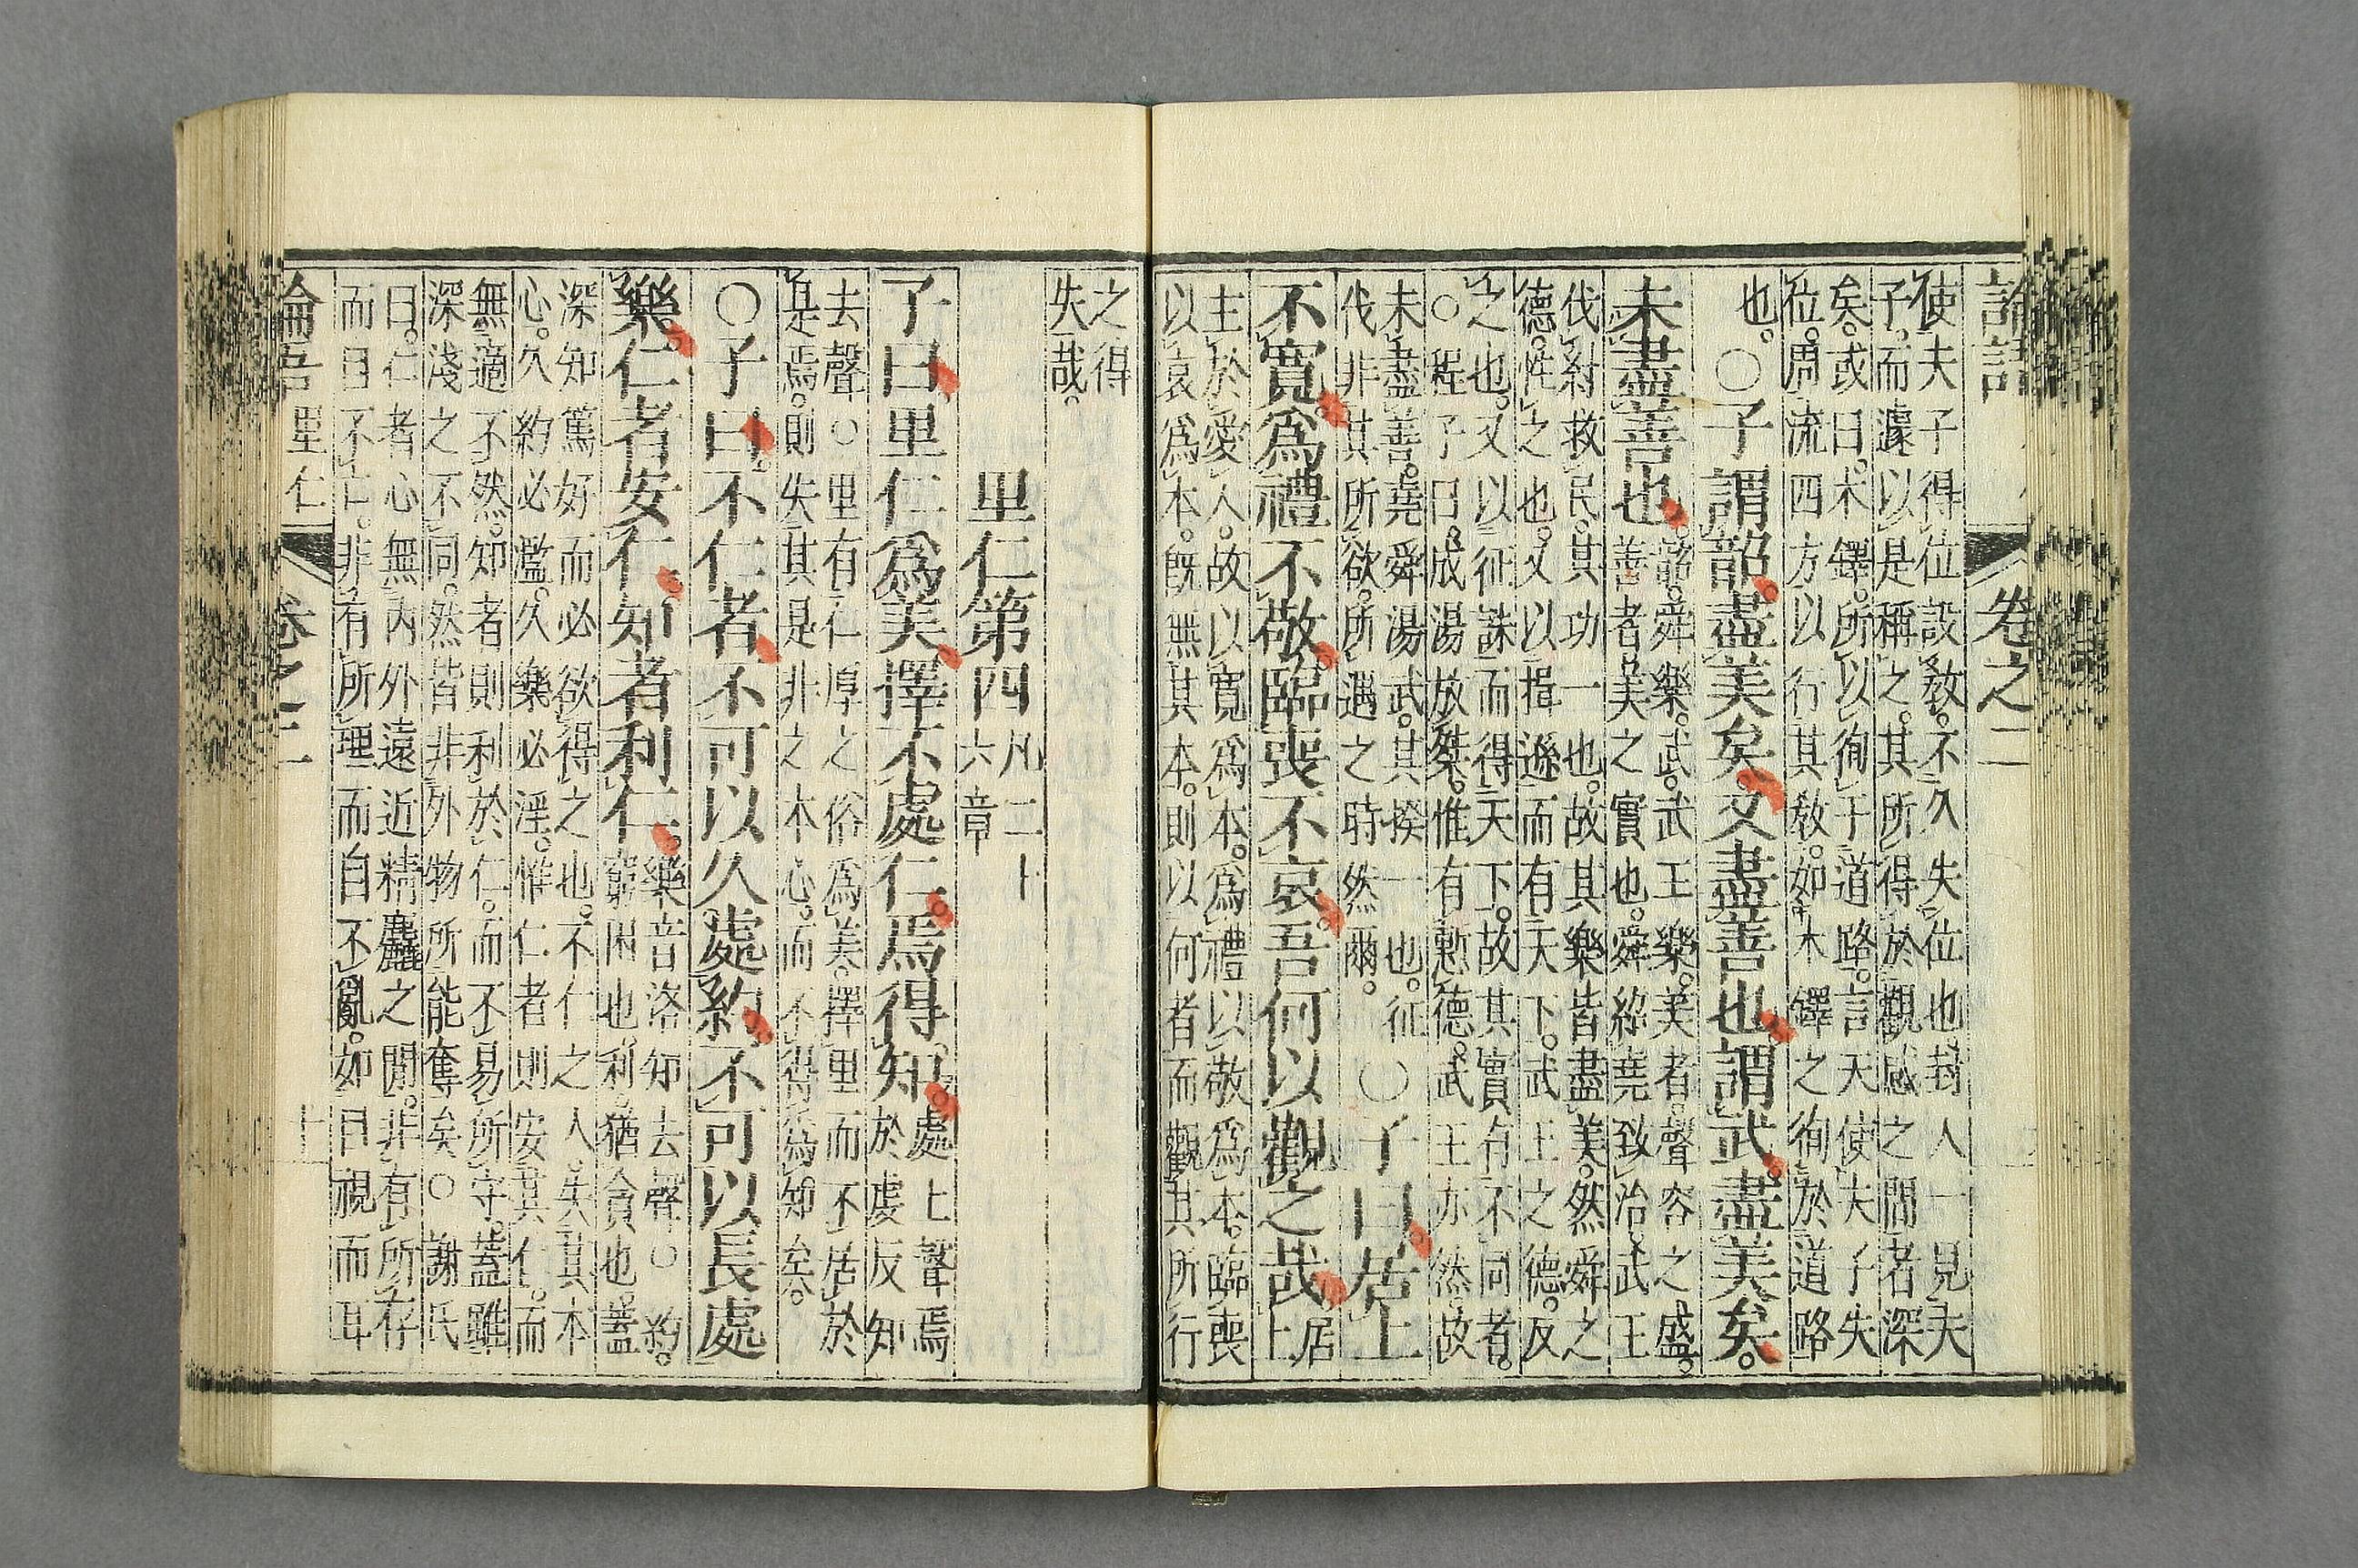 論語 卷之二
使夫子得位設敎。不久失位也。封人一見夫
子。而遽以是稱之。其所得於觀感之間者深
矣。或曰。木鐸。所以徇于道路。言天使夫子失
位。周流四方以行其敎。如木鐸之徇於道路
也。〇子謂韶。盡美矣。又盡善也。謂武。盡美矣。
未盡善也。
韶。舜樂。武。武王樂。美者。聲容之盛。
善者。美之實也。舜紹堯致治。武王
伐紂救民。其功一也。故其樂皆盡美。然舜之
德。性之也。又以揖遜而有天下。武王之德。反
之也。又以征誅而得天下。故其實有不同者。
〇程子曰。成湯放桀。惟有慙德。武王亦然。故
未盡善。堯舜湯武。其揆一也。征
伐非其所欲。所遇之時然爾。
〇子曰。居上
不寬。爲禮不敬。臨喪不哀。吾何以觀之哉。
居
上
主於愛人。故以寬爲本。爲禮以敬爲本。臨喪
以哀爲本。旣無其本。則以何者而觀其所行
之得
失哉。
里仁第四
凡二十
六章
子曰。里仁爲美。擇不處仁。焉得知。
處上聲焉
於虔反知
去聲〇里有仁厚之俗爲美。擇里而不居於
是焉。則失其是非之本心。而不得爲知矣。
〇子曰。不仁者。不可以久處約。不可以長處
樂。仁者安仁。知者利仁。
樂音洛知去聲〇約。
窮困也。利。猶貪也。蓋
深知篤好而必欲得之也。不仁之人。失其本
心。久約必濫。久樂必淫。惟仁者則安其仁。而
無適不然。知者則利於仁。而不易所守。蓋雖
深淺之不同。然皆非外物所能奪矣。〇謝氏
曰。仁者心無內外遠近精麤之閒。非有所存
而自不亡。非有所理而自不亂。如目視而耳
論語 里仁 卷之二 十一